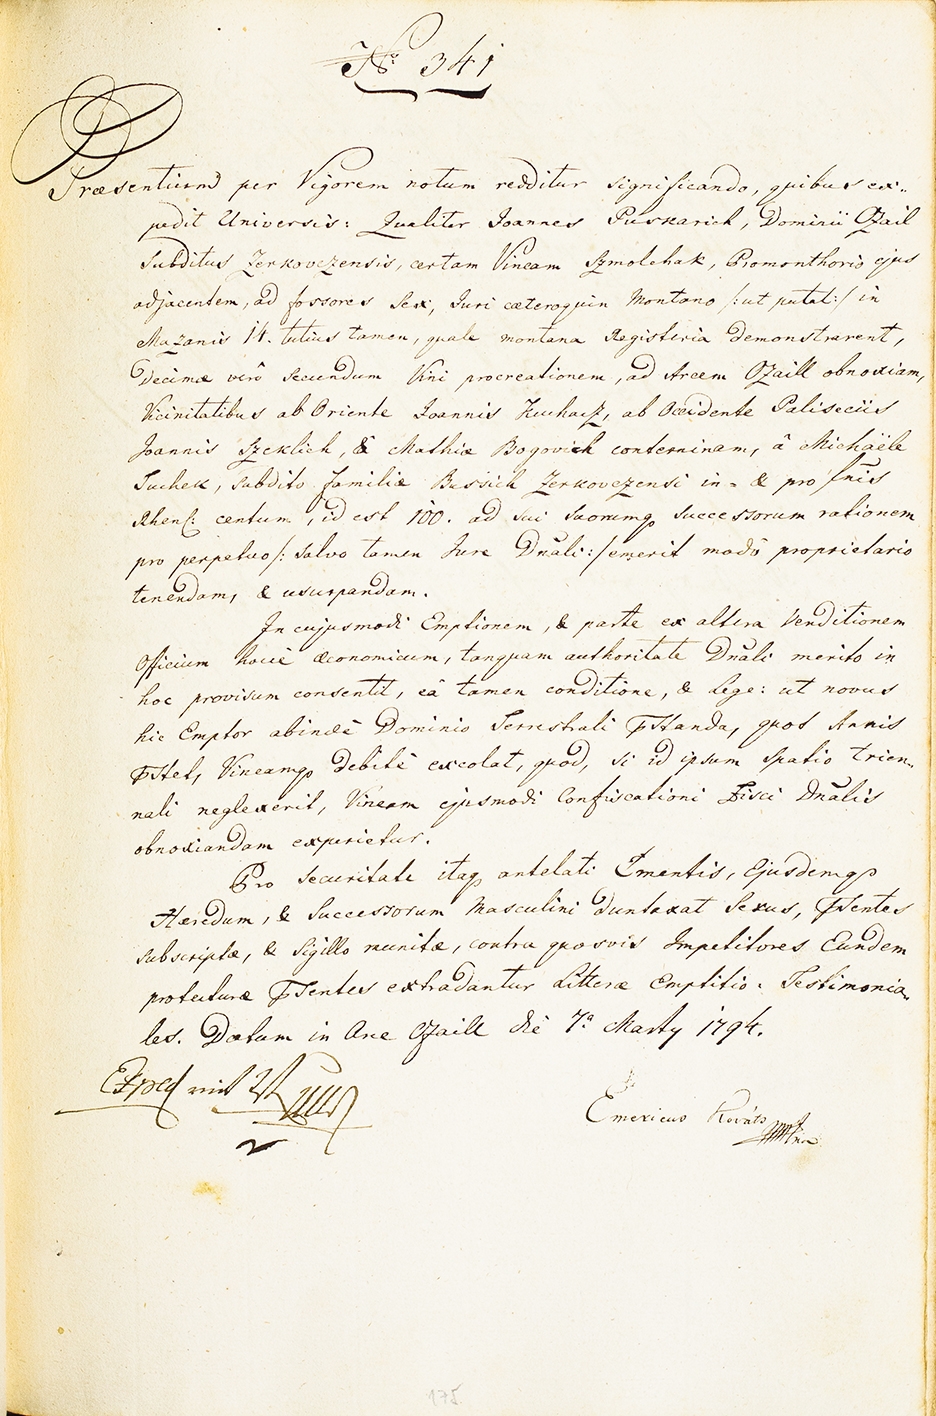 № 341
Præsentium per Vigorem notum redditur significando, quibus ex-
pedit Universis: Qualiter Joannes Puskarich, Dominii Ozail
Subditus Zerkovczensis, certam Vineam Szmolchak, Promonthorio ejus
adjacentem, ad fossores Sex, Juri cæteroquin Montano /:ut putat:/ in
Mazanis 14. tutius tamen, quale montana Registeria demonstrarent,
Decimæ verô secundum Vini procreationem, ad Arcem Ozaill obnoxiam,
Vicinitatibus ab Oriente Joannis Kuharz, ab Occidente Paliseciis
Joannis Szeklich, & Mathiæ Bogovich conterminam, â Michaële
Suchek, subdito familiæ Bussich Zerkovczensi in- & pro fnis
Rhen: centum, id est 100. ad sui suorumq successorum rationem
pro perpetuo /: salvo tamen Jure Dnali:/ emerit modô proprietario
tenendam, & usurpandam.
In cujusmodi Emptionem, & parte ex altera Venditionem
Officium hocce œconomicum, tanquam authoritate Dnali merito in
hoc provisum consentit, eâ tamen conditione, & lege: ut novus
hic Emptor abinde Dominio Terrestrali Pstanda, quot Annis
Pstet, Vineamq debitê excolat, quod, si id ipsum spatio trien-
nali neglexerit, Vineam ejusmodi Confiscationi Fisci Dnalis
obnoxiandam experietur.
Pro securitate itaq antelati Ementis, Ejusdemq
Hæredum, & Successorum Masculini duntaxat Sexus, Psentes
subscriptæ, & Sigillo munitæ, contra quosvis Impetitores Eundem
protecturæ Psentes extradantur Litteræ Emptitio-Testimonia-
les. Datum in Arce Ozaill die 7a Marty 1794.
Exped
Emericus Kováts
175